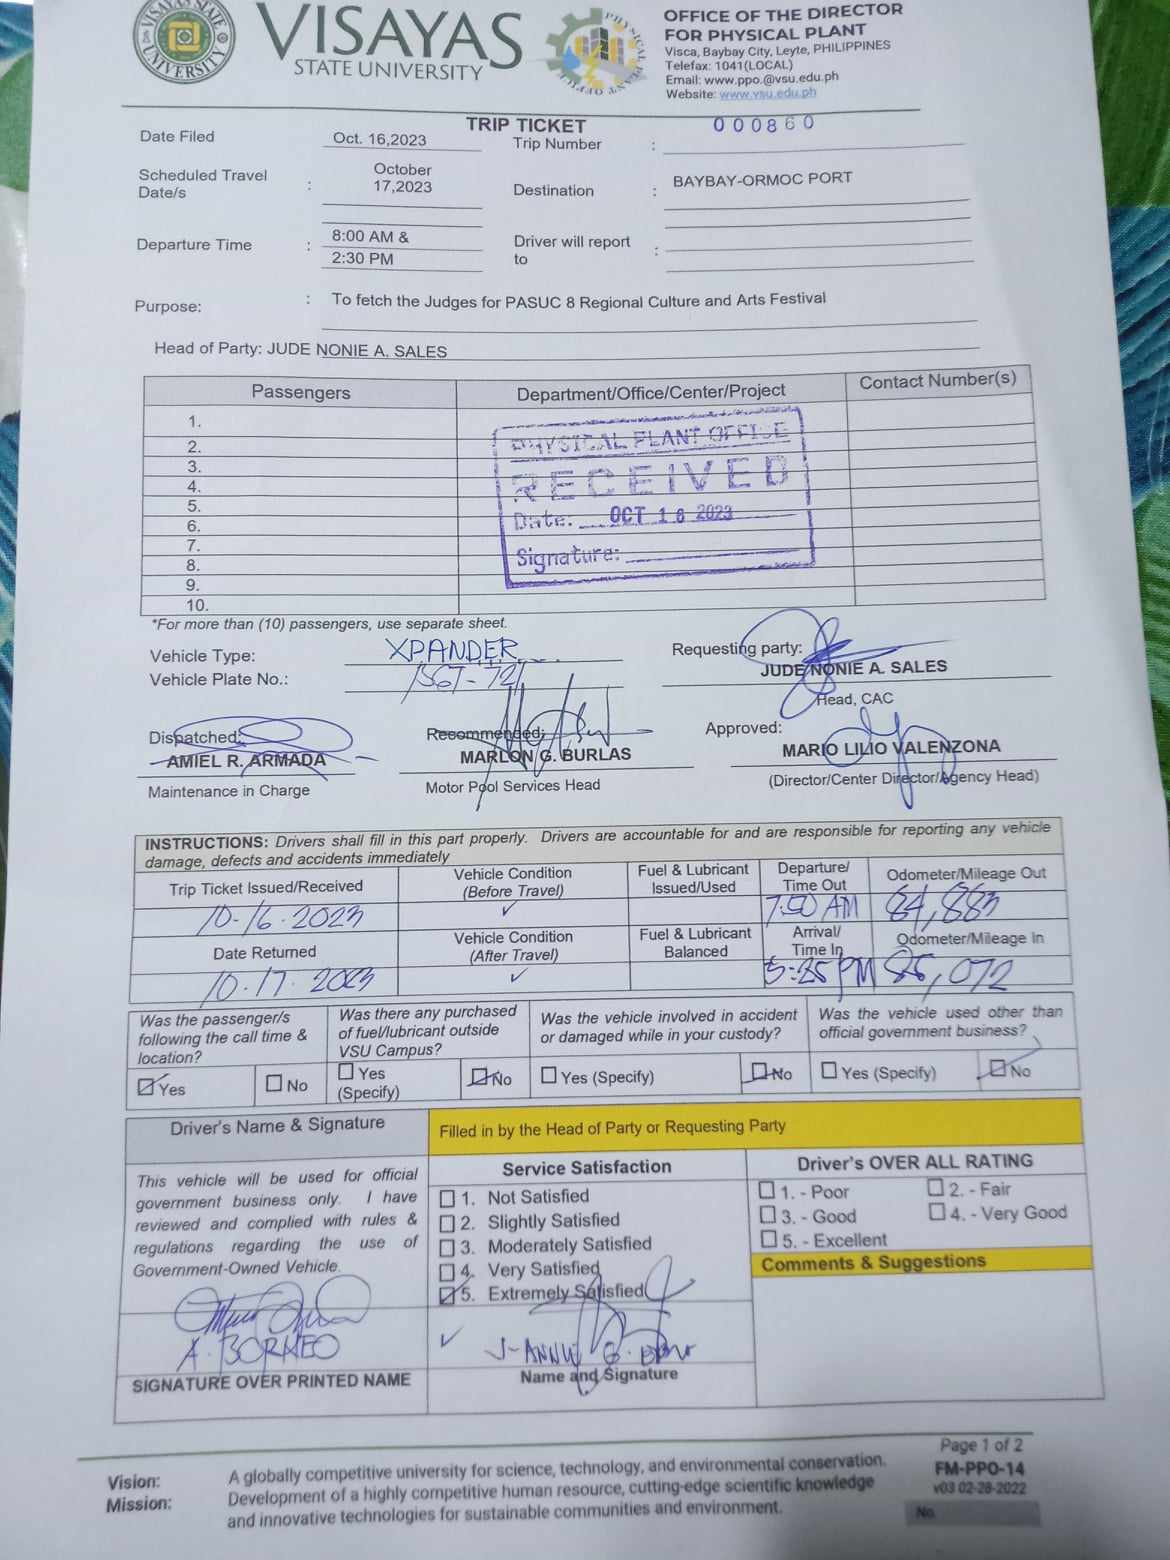 VISAYAS STATE UNIVERSITY
VISAYAS
STATE UNIVERSITY
PHYSICAL PLANT OFFICE
OFFICE OF THE DIRECTOR
FOR PHYSICAL PLANT
Visca, Baybay City, Leyte, PHILIPPINES
Telefax: 1041(LOCAL)
Email: www.ppo.@vsu.edu.ph
Website: www.vsu.edu.ph
TRIP TICKET
000860
Date Filed Oct. 16,2023 Trip Number :
Scheduled Travel Date/s : October 17,2023 Destination : BAYBAY-ORMOC PORT
Departure Time : 8:00 AM & 2:30 PM Driver will report to :
Purpose: : To fetch the Judges for PASUC 8 Regional Culture and Arts Festival
Head of Party: JUDE NONIE A. SALES
Passengers Department/Office/Center/Project Contact Number(s)
1.
2.
3.
4.
5.
6.
7.
8.
9.
10.
PHYSICAL PLANT OFFICE
RECEIVED
Date: OCT 16 2023
Signature:
*For more than (10) passengers, use separate sheet.
Vehicle Type: XPANDER
Vehicle Plate No.:
Requesting party:
JUDE NONIE A. SALES
Head, CAC
Dispatched:
AMIEL R. ARMADA
Maintenance in Charge
Recommended:
MARLON G. BURLAS
Motor Pool Services Head
Approved:
MARIO LILIO VALENZONA
(Director/Center Director/Agency Head)
INSTRUCTIONS: Drivers shall fill in this part properly. Drivers are accountable for and are responsible for reporting any vehicle
damage, defects and accidents immediately
Trip Ticket Issued/Received Vehicle Condition (Before Travel) Fuel & Lubricant Issued/Used Departure/ Time Out Odometer/Mileage Out
10-16-2023 ✓ 7:50 AM 84,883
Date Returned Vehicle Condition (After Travel) Fuel & Lubricant Balanced Arrival/ Time In Odometer/Mileage In
10-17-2023 ✓ 5:25 PM 85,072
Was the passenger/s following the call time & location?
Was there any purchased of fuel/lubricant outside VSU Campus?
Was the vehicle involved in accident or damaged while in your custody?
Was the vehicle used other than official government business?
☑ Yes ☐ No ☐ Yes (Specify) ☑ No ☐ Yes (Specify) ☑ No ☐ Yes (Specify) ☑ No
Driver's Name & Signature
Filled in by the Head of Party or Requesting Party
This vehicle will be used for official
government business only. I have
reviewed and complied with rules &
regulations regarding the use of
Government-Owned Vehicle.
A. BORNEO
SIGNATURE OVER PRINTED NAME
Service Satisfaction
☐ 1. Not Satisfied
☐ 2. Slightly Satisfied
☐ 3. Moderately Satisfied
☐ 4. Very Satisfied
☑ 5. Extremely Satisfied
✓
Name and Signature
Driver's OVER ALL RATING
☐ 1. - Poor ☐ 2. - Fair
☐ 3. - Good ☐ 4. - Very Good
☐ 5. - Excellent
Comments & Suggestions
Vision: A globally competitive university for science, technology, and environmental conservation.
Mission: Development of a highly competitive human resource, cutting-edge scientific knowledge
and innovative technologies for sustainable communities and environment.
Page 1 of 2
FM-PPO-14
v03 02-28-2022
No.